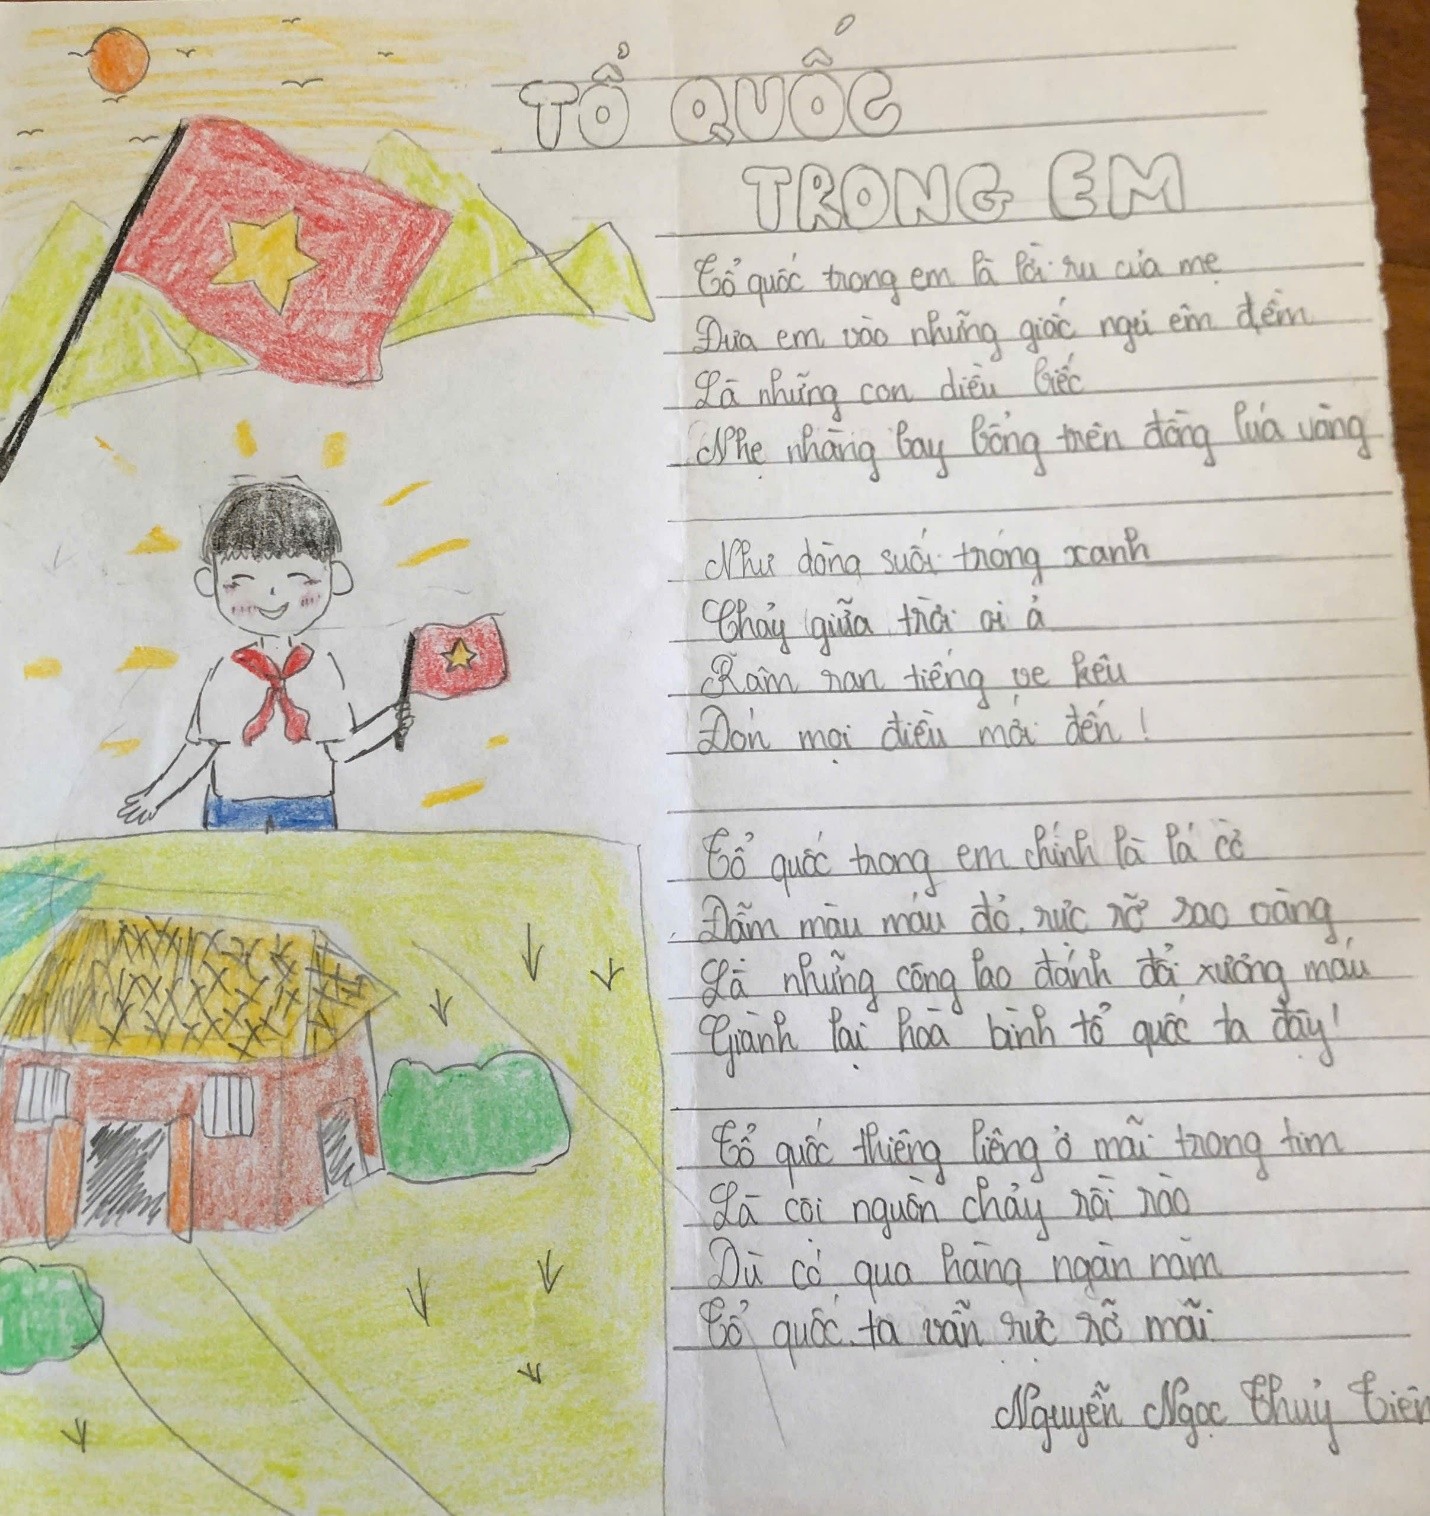 TỔ QUỐC
TRONG EM
Tổ quốc trong em là lời ru của mẹ
Đưa em vào những giấc ngủ êm đềm
Là những con diều biếc
Nhẹ nhàng bay bổng trên đồng lúa vàng
Như dòng suối trong xanh
Chảy giữa trời oi ả
Râm ran tiếng ve kêu
Đón mọi điều mới đến!
Tổ quốc trong em chính là lá cờ
Đẫm màu máu đỏ, rực rỡ sao vàng
Là những công lao đánh đổi xương máu
Giành lại hoà bình tổ quốc ta đấy!
Tổ quốc thiêng liêng ở mãi trong tim
Là cội nguồn chảy rồi rào
Dù có qua hàng ngàn năm
Tổ quốc ta vẫn rực rỡ mãi
Nguyễn Ngọc Thuỷ Tiên